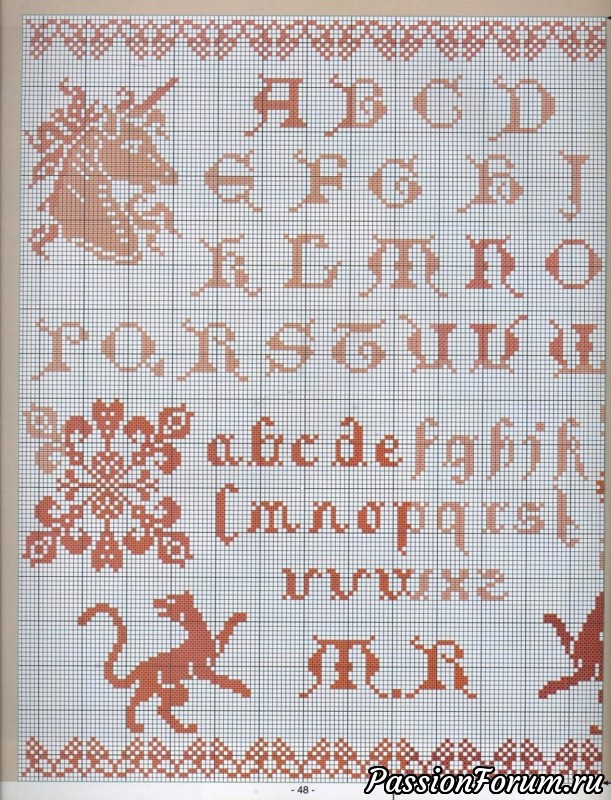 A B C D
E F G H J
K L M N O
P Q R S T U V W
a b c d e f g h j k
l m n o p q r s t
u v w x z
M.R
- 48 -
PassionForum.ru